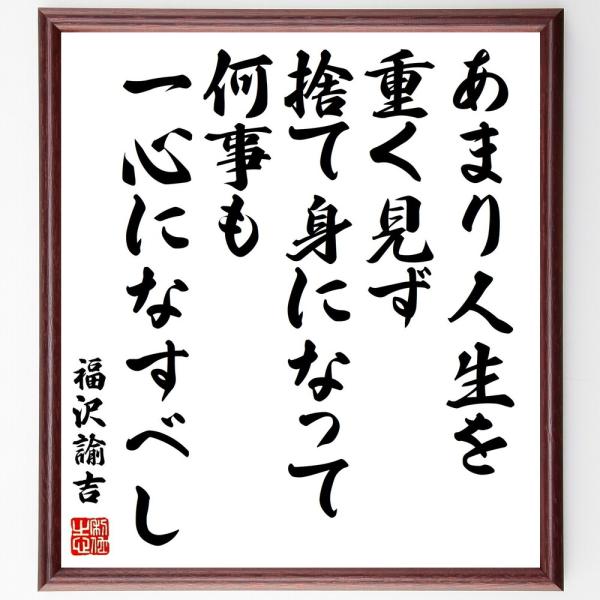 あまり人生を
重く見ず
捨て身になって
何事も
一心になすべし
福沢諭吉